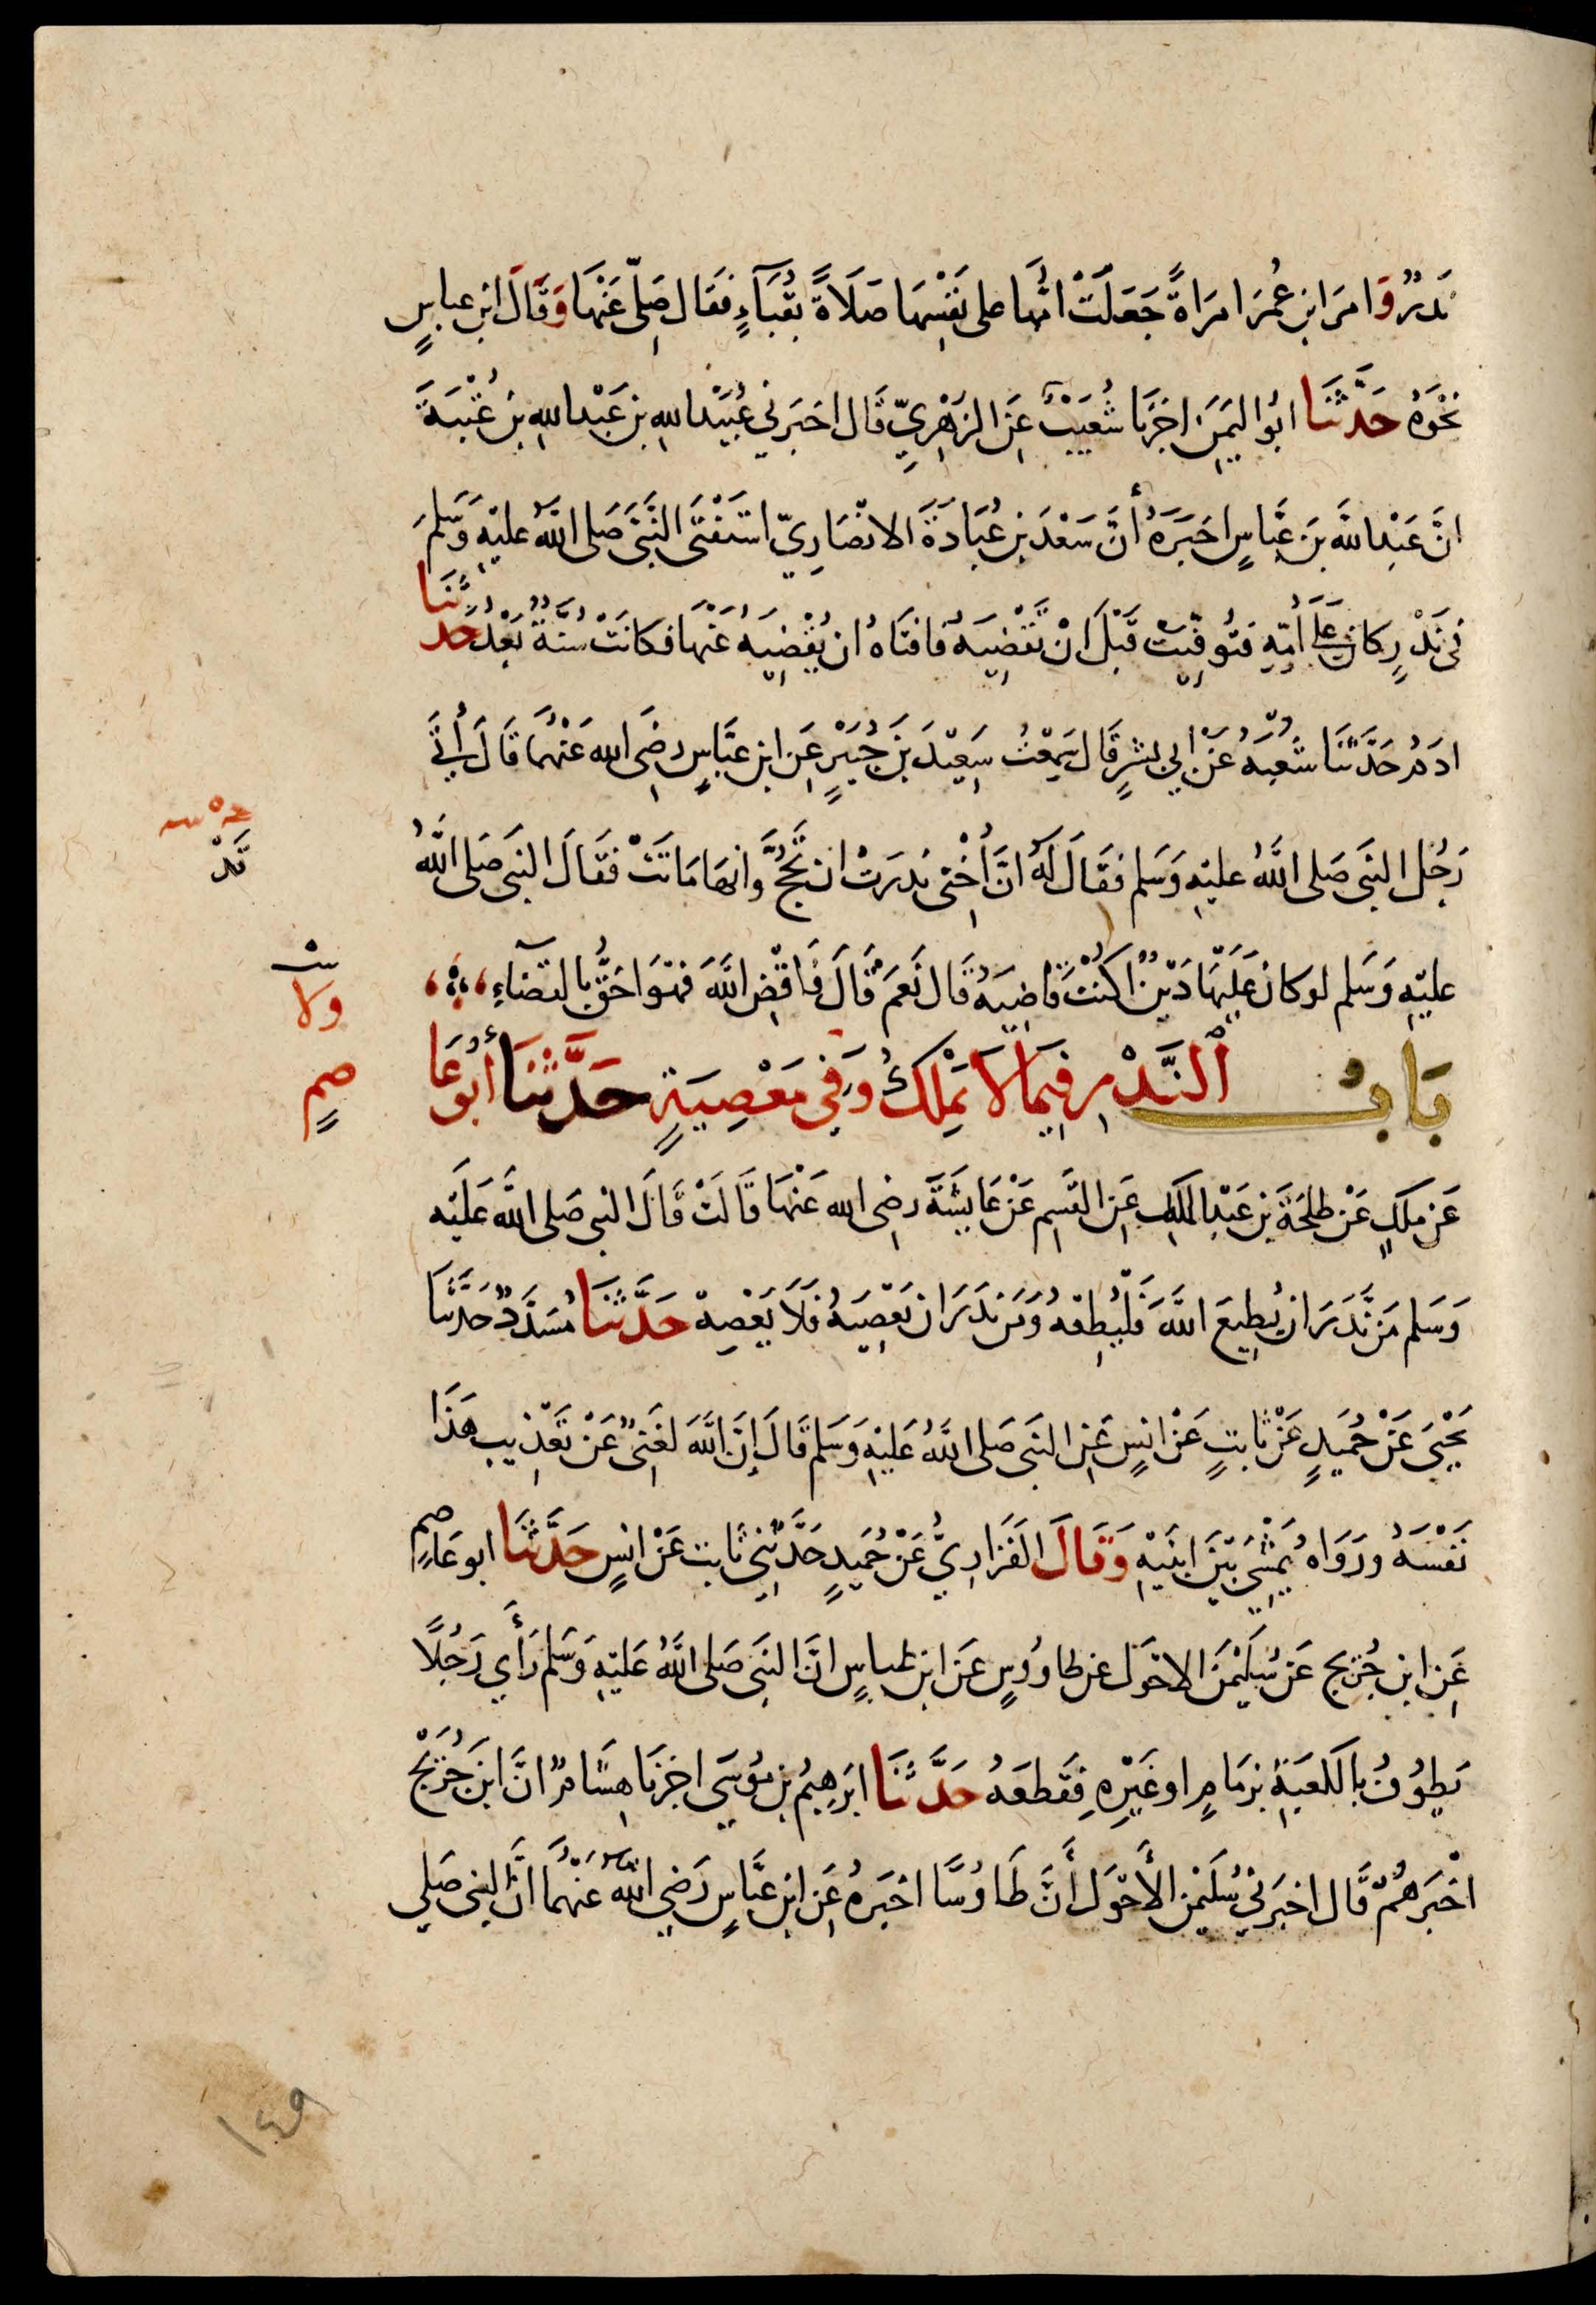 نَذرٌ وَامرَ ابن عُمرَ امرَاةً جَعَلَتْ امُّها على نَفْسِهَا صَلَاةً بقُبَاءٍ فقال صَلِّى عَنْهَا وَقَالَ ابن عباسٍ
نَحْوَهُ حَدَّثَنَا ابُو اليَمَنِ اخبرَنَا شُعَيْبٌ عَنِ الزهْرِيِّ قَال اخبَرَني عُبَيْدُ الله بن عَبْد الله بن عُتْبَةَ
انَّ عَبْدَ اللَّهَ بنَ عَبَّاسٍ اخبَرَهُ أنَّ سَعْدَ بن عُبَادَةَ الانصَارِيّ استَفْتَى النَّبىَّ صَلى اللَّهُ عليْهِ وَسَلمَ
فى نَذْرٍ كان على أُمِّهِ فتُوفِّيَتْ قَبْلَ انْ تَقْضِيَهُ فَافتَاهُ ان يَقْضِيَهُ عَنْهَا فكانَتْ سُنَّةً بَعْدُ حَدَّثَنَا
ادَمُ حَدَّثَنَا شُعْبَهُ عَنْ ابي بشرٍ قَال سَمِعْتُ سَعِيْدَ بنَ جُبَيْرٍ عَنِ ابن عبَّاسٍ رضِىَ الله عَنْهُمَا قَالَ أَتَى
رَجُل النبَى صَلى اللَّهُ عليْهِ وَسَلم فقَالَ لَهُ انَّ أُخْتى نذَرَتْ ان تَحُجَّ وَانهَا مَاتَتْ فقَالَ النبَى صَلى اللَّهُ
عليْهِ وَسَلم لو كان عَلَيْهَا دَيْنٌ اكُنْتَ قاضِيَهُ قَال نَعَمْ قَالَ فَاقْضِ اللَّهَ فهُوَ احَقُّ بالقضَاءِ
بَابُ النَّذْرِ فِيمَا لَا يَمْلِكُ وَفِي مَعْصِيَةٍ حَدَّثَنَا أَبُو عَا
صمٍ
عَن مٰلكٍ عَنْ طلحَةَ بن عَبْدِ الملكِ عَنِ القٰسِم عَنْ عَايشَةَ رضِى الله عَنْهَا قَالَتْ قَالَ النبى صَلى اللَّه عَلَيْه
وَسَلم مَن نَّذَرَ ان يُطِيعَ اللَّهَ فَلْيُطِعْهُ وَمَن نذَرَ ان يَعْصِيَهُ فلَا يَعْصِهْ حَدَّثَنَا مُسَدَّدٌ حَدَّثَنَا
يَحْيىَ عَنْ حُمَيدٍ عَنْ ثابتٍ عَنْ انسٍ عَنِ النبَى صَلى اللَّهُ عَليْهِ وَسَلم قَالَ إنَّ اللَّهَ لغَنِىٌّ عَنْ تَعْذِيبِ هَذَا
نَفْسَهُ ورَوَاهُ يَمْشِي بَيْنَ ابنَيْهِ وَقَالَ الفَزَارِيُّ عَنْ حُمَيدٍ حَدَّثَنِي ثَابت عَنْ انسٍ حَدَّثَنَا ابو عَاصمٍ
عَنِ ابن جُريْج عَنْ سُلَيْمٰنَ الاحْوَل عن طاوُوسٍ عَنَ ابن عباسٍ انَّ النبَى صَلى اللَّهُ عَليْهِ وَسَلم رَأَي رَجُلًا
يَطُوُفُ بالكعْبَةِ بزمَامٍ او غَيْرِهِ فقَطعَهُ حَدَّثَنَا ابرَهِيمُ بن مُوسَى اخبرَنَا هِشَامٌ انَّ ابنَ جُرَيْجٍ
اخْبَرَهُمْ قَال اخبَرَني سُلَيْمٰن الأَحْوَل أَنَّ طَاوُسًا اخبَرهُ عَنِ ابن عبَّاسٍ رَضِي اللَّهُ عَنْهُمَا انَّ النبى صَلى
ولا
١٤٩